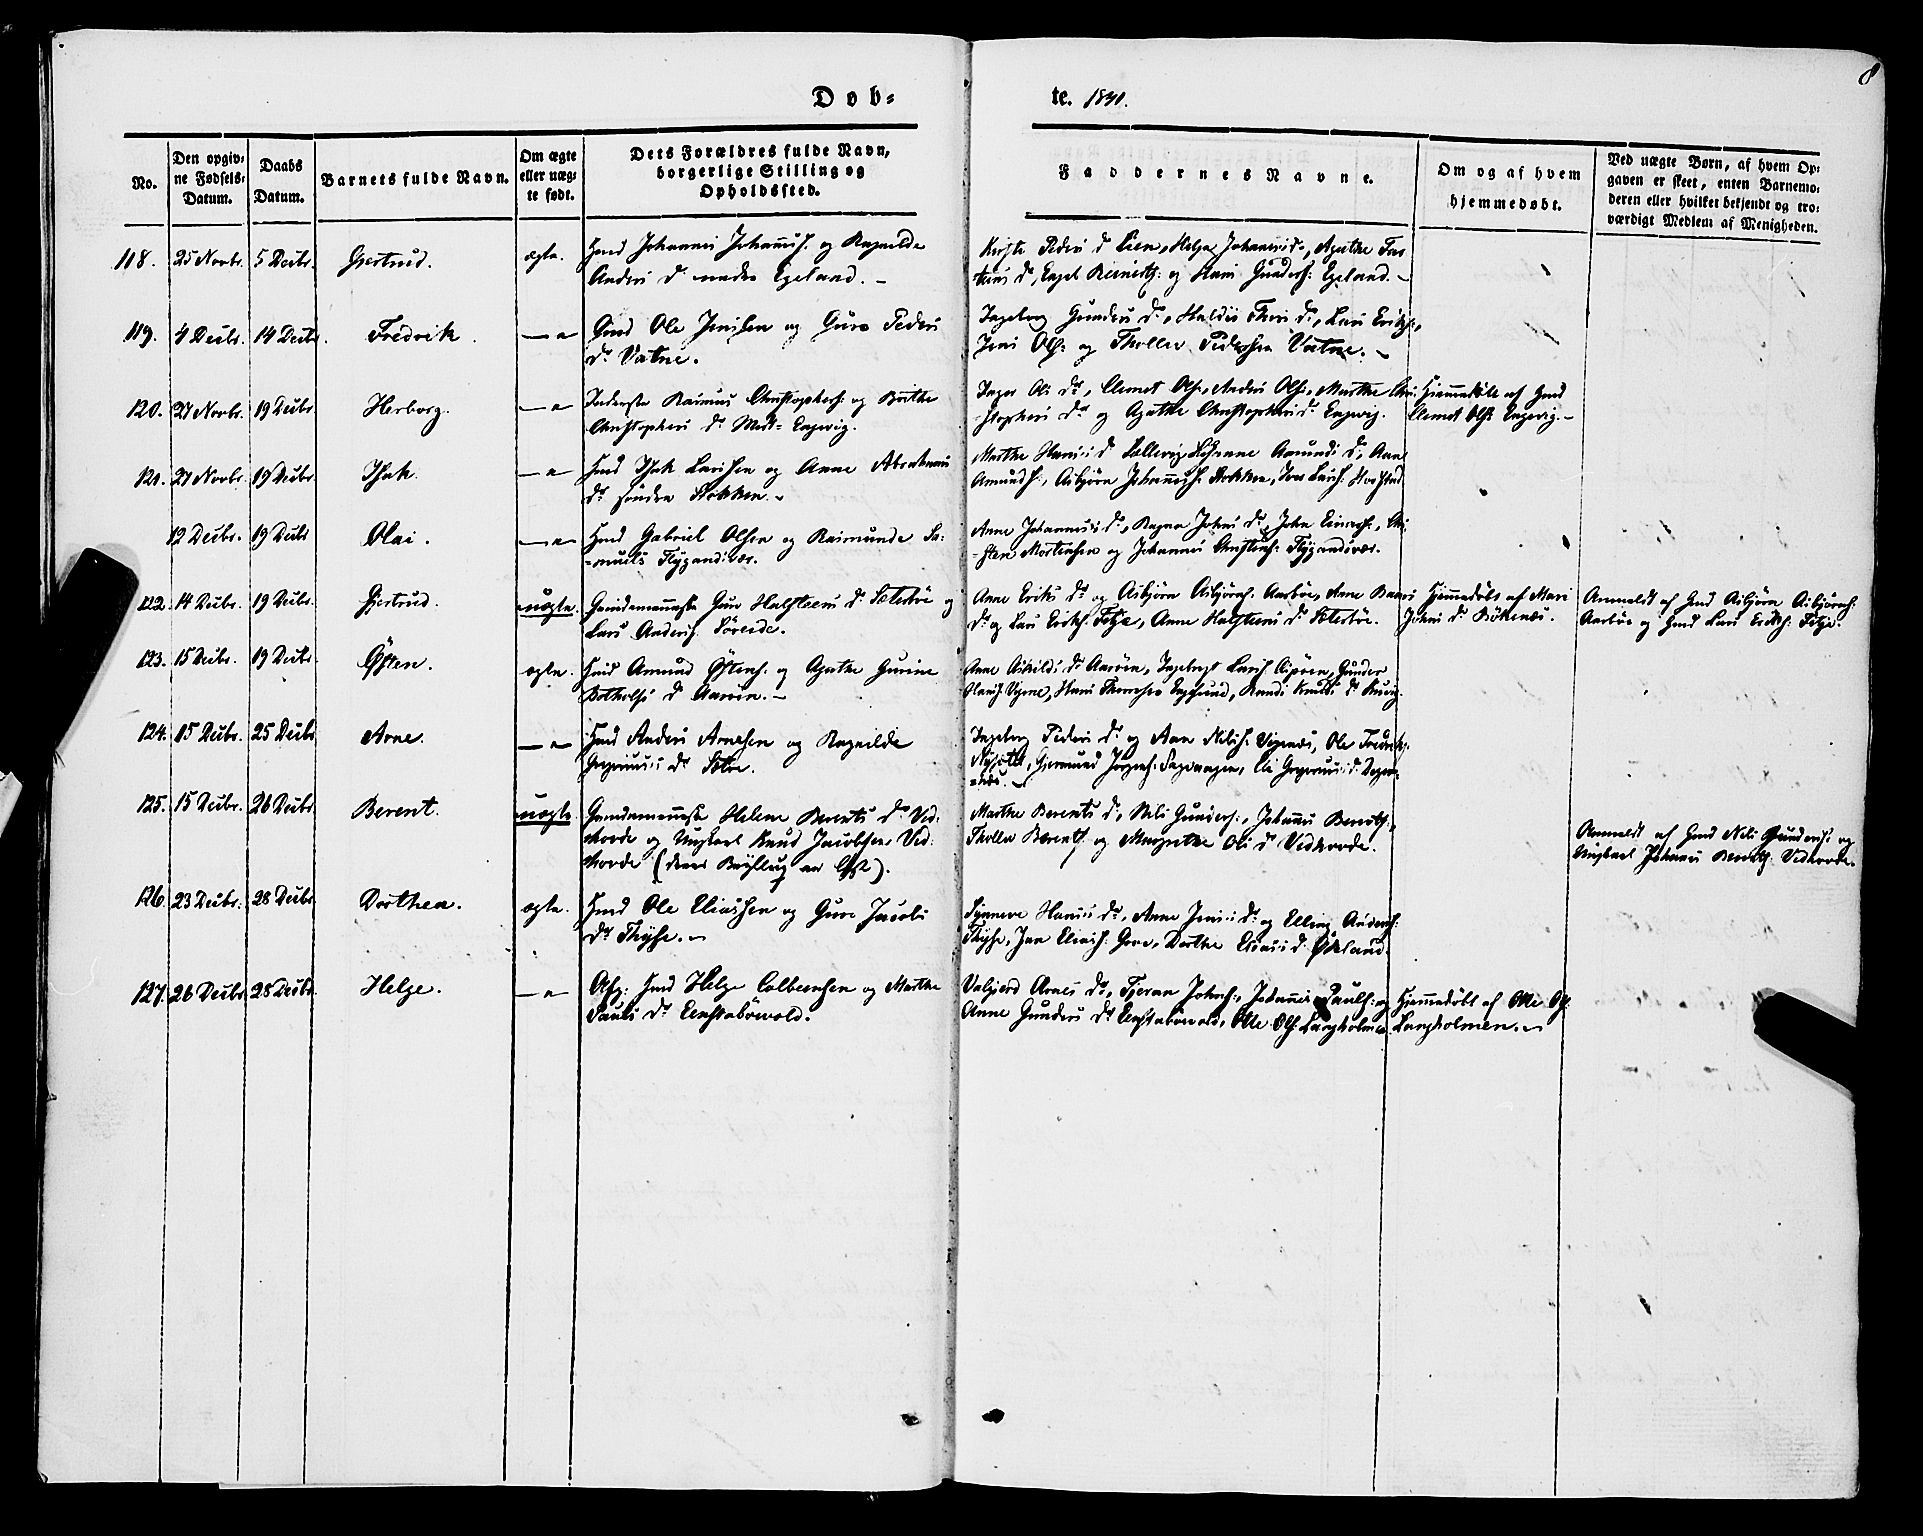 8
Døb-
te. 1831.
No.
Den opgiv-
ne Fødsels-
Datum.
Daabs
Datum.
Barnets fulde Navn.
Om ægte
eller uæg-
te født.
Dets Forældres fulde Navn,
borgerlige Stilling og
Opholdssted.
Faddernes Navne.
Om og af hvem
hjemmedøbt.
Ved uægte Børn, af hvem Op-
gaven er skeet, enten Barnemo-
deren eller hvilket bekjendt og tro-
værdigt Medlem af Menigheden.
118. 25 Novbr. 5 Decbr. Gjertrud. ægte. Gmd Johannes Johannes. og Ragnilde
Anders D. nedre Egeland. -
Peders D. Lien, Helga Johannes D., Agathe
D., Engel og Hans Gunders. Egeland. -
119. 4 Decbr. 14 Decbr. Fredrik. -"- Gmd Ole Jensen og Guro Peders
Dr Vatne.
Ingeborg Gunders Dr, Thers Dr, Lars Eriks.,
Jens Ols. og Tholler Pedersen Vatne. -
120. 27 Novbr. 19 Decbr. Herborg. -"- Inderste Rasmus Christophers. og Brithe
Christophers D. West-Engevig.
Inger Ols Dr, Clemet Ols., Anders Ols., Marthe Chri-
-stophers Dr og Agathe Christophers Dr Engevig.
Hjemmedøbt af Gmd
Clemet Ols. Engevig. -
121. 27 Novbr. 19 Decbr. Isak. -"- Gmd Isak Larssen og Anne Abrahams
Dr søndre Stokken. -
Marthe Hans's D. Amunds D., Anne
Amunds., Asbjørn Johannes. Stokken, Lars.
12 Decbr. 19 Decbr. Olai. -"- Gmd Gabriel Olsen og Rasmunde Sa-
-muels Flygandsvær.
Anne Johannes's Dr, Ragna Johns Dr, John Einars.,
-sten Mortensen og Johannes Christens. Flygandsvær.
122. 14 Decbr. 19 Decbr. Gjertrud. uægte. Gaardemandsp. Guro Halsteens D. Sæterbøe og
Lars Anders. Søreide.
Anne Eriks Dr og Asbjørn Asbjørns. Aarbøe, Anne
Dr og Lars Eriks. Fitje, Anne Halsteens Dr Sæterbøe.
Hjemmedøbt af Mari
Johns Dr Bøkenæs.
Anmeldt af Gmd Asbjørn Asbjørns.
Aarbøe og Gmd Lars Eriks. Fitje.
123. 15 Decbr. 19 Decbr. Østen. ægte. Gmd Amund Østens. og Agathe Gurine
Botholfs D. Aarøen. -
Anne Askilds Dr Aarøen, Lars. Gunder
Hans Thomesen Engesund, Randi Knuds Dr
124. 15 Decbr. 25 Decbr. Arne. -"- Gmd Anders Arnesen og Ragnilde
Gregorius's Dr
Ingeborg Peders D. og Aan Nils. Vigenæs, Ole Fredriks.
Gjermund Jørgens. Fagervangen, Eli Gregorius's D.
125. 15 Decbr. 26 Decbr. Berent. uægte. Gaardemandsp. Helene Berents Dr Vid-
skorde og Ungkarl Knud Jacobsen Vid-
skorde (deres Bryllup er lyst).
Marthe Berents D., Nils Gunders., Johannes Berents.,
Tholler Berents. og Margrethe Ols Dr Vidskorde.
Anmeldt af Gmd Nils Gunders. og
Ungkarl Johannes Berents. Vidskorde.
126. 23 Decbr. 28 Decbr. Dorthea. ægte. Gmd Ole Eliassen og Guro Jacobs
Dr Thyse. -
Synneve Hans's Dr, Anne Jens's Dr og Elling Anders.
Thyse, Jan Elias. Dorthe Elias's D. Økland.
127. 26 Decbr. 28 Decbr. Helge. -"- Afg: Gmd Helge Colbeensen og Marthe
Pauls Dr Eenstabøevold.
Valgjerd Arnes Dr, Tjeran Johns., Johannes Pauls. og
Anne Gunders Dr Eenstabøevold, Ole Ols. Langholmen.
Hjemmedøbt af Ole Ols.
Langholmen. -